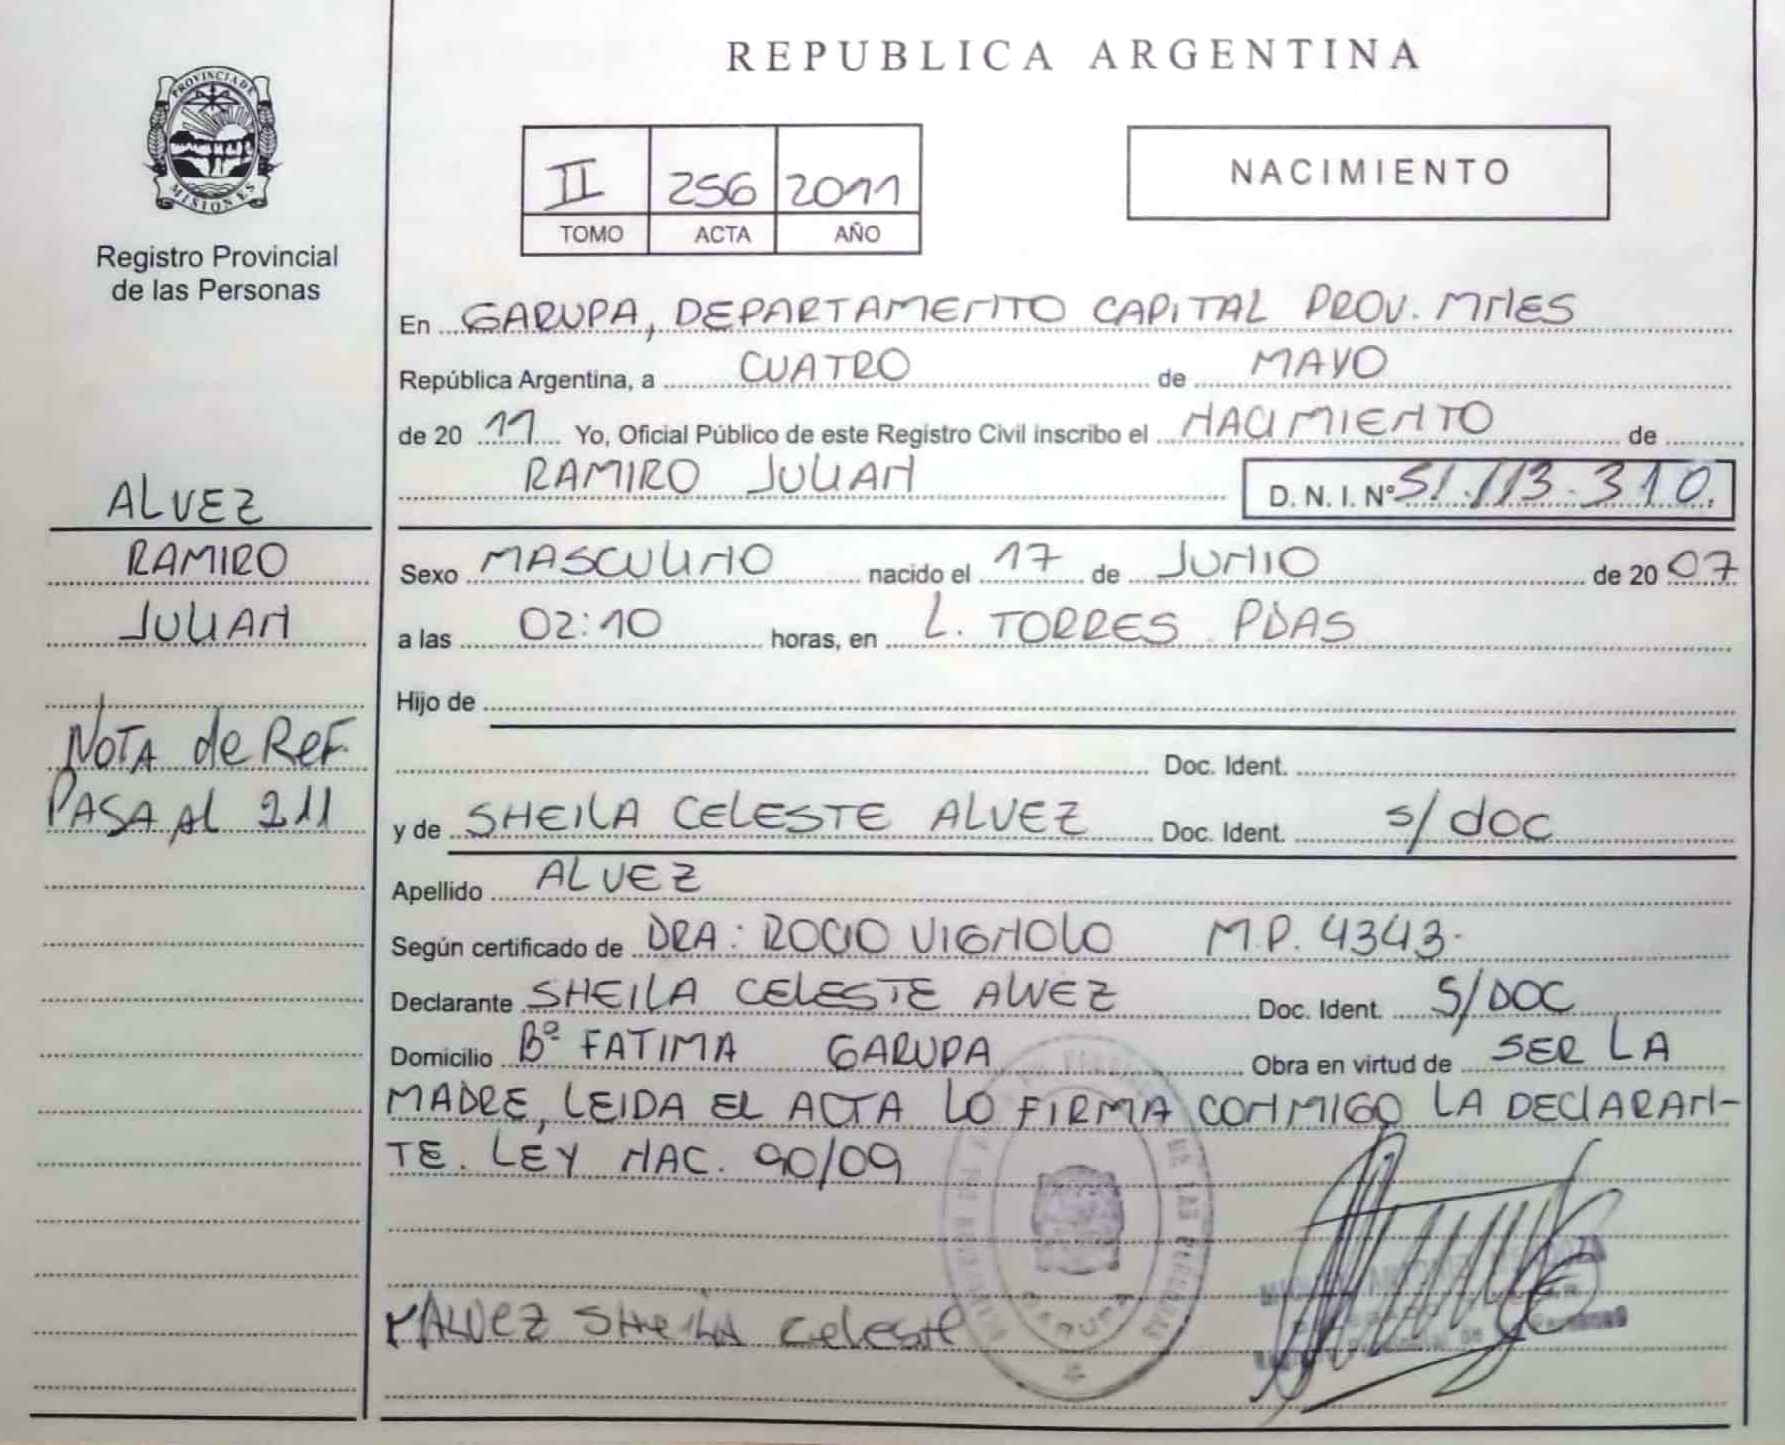 REPUBLICA ARGENTINA
PROVINCIA DE
MISIONES
Registro Provincial
de las Personas
II 256 2011
TOMO ACTA AÑO
NACIMIENTO
En GARUPA, DEPARTAMENTO CAPITAL PROV. MNES
República Argentina, a CUATRO de MAYO
de 2011 Yo, Oficial Público de este Registro Civil inscribo el NACIMIENTO de
RAMIRO JULIAN D. N. I. Nº 51.113.310.
Sexo MASCULINO nacido el 17 de JUNIO de 2007
a las 02:10 horas, en L. TORRES PDAS
Hijo de
Doc. Ident.
y de SHEILA CELESTE ALVEZ Doc. Ident. s/doc
Apellido ALVEZ
Según certificado de DRA: ROCIO VIGNOLO M.P. 4343.
Declarante SHEILA CELESTE ALVEZ Doc. Ident. S/DOC
Domicilio Bº FATIMA GARUPA Obra en virtud de SER LA
MADRE, LEIDA EL ACTA LO FIRMA CONMIGO LA DECLARAN-
TE. LEY NAC. 90/09
ALVEZ SHEILA Celeste
ALVEZ
RAMIRO
JULIAN
NOTA de REF.
PASA AL 211